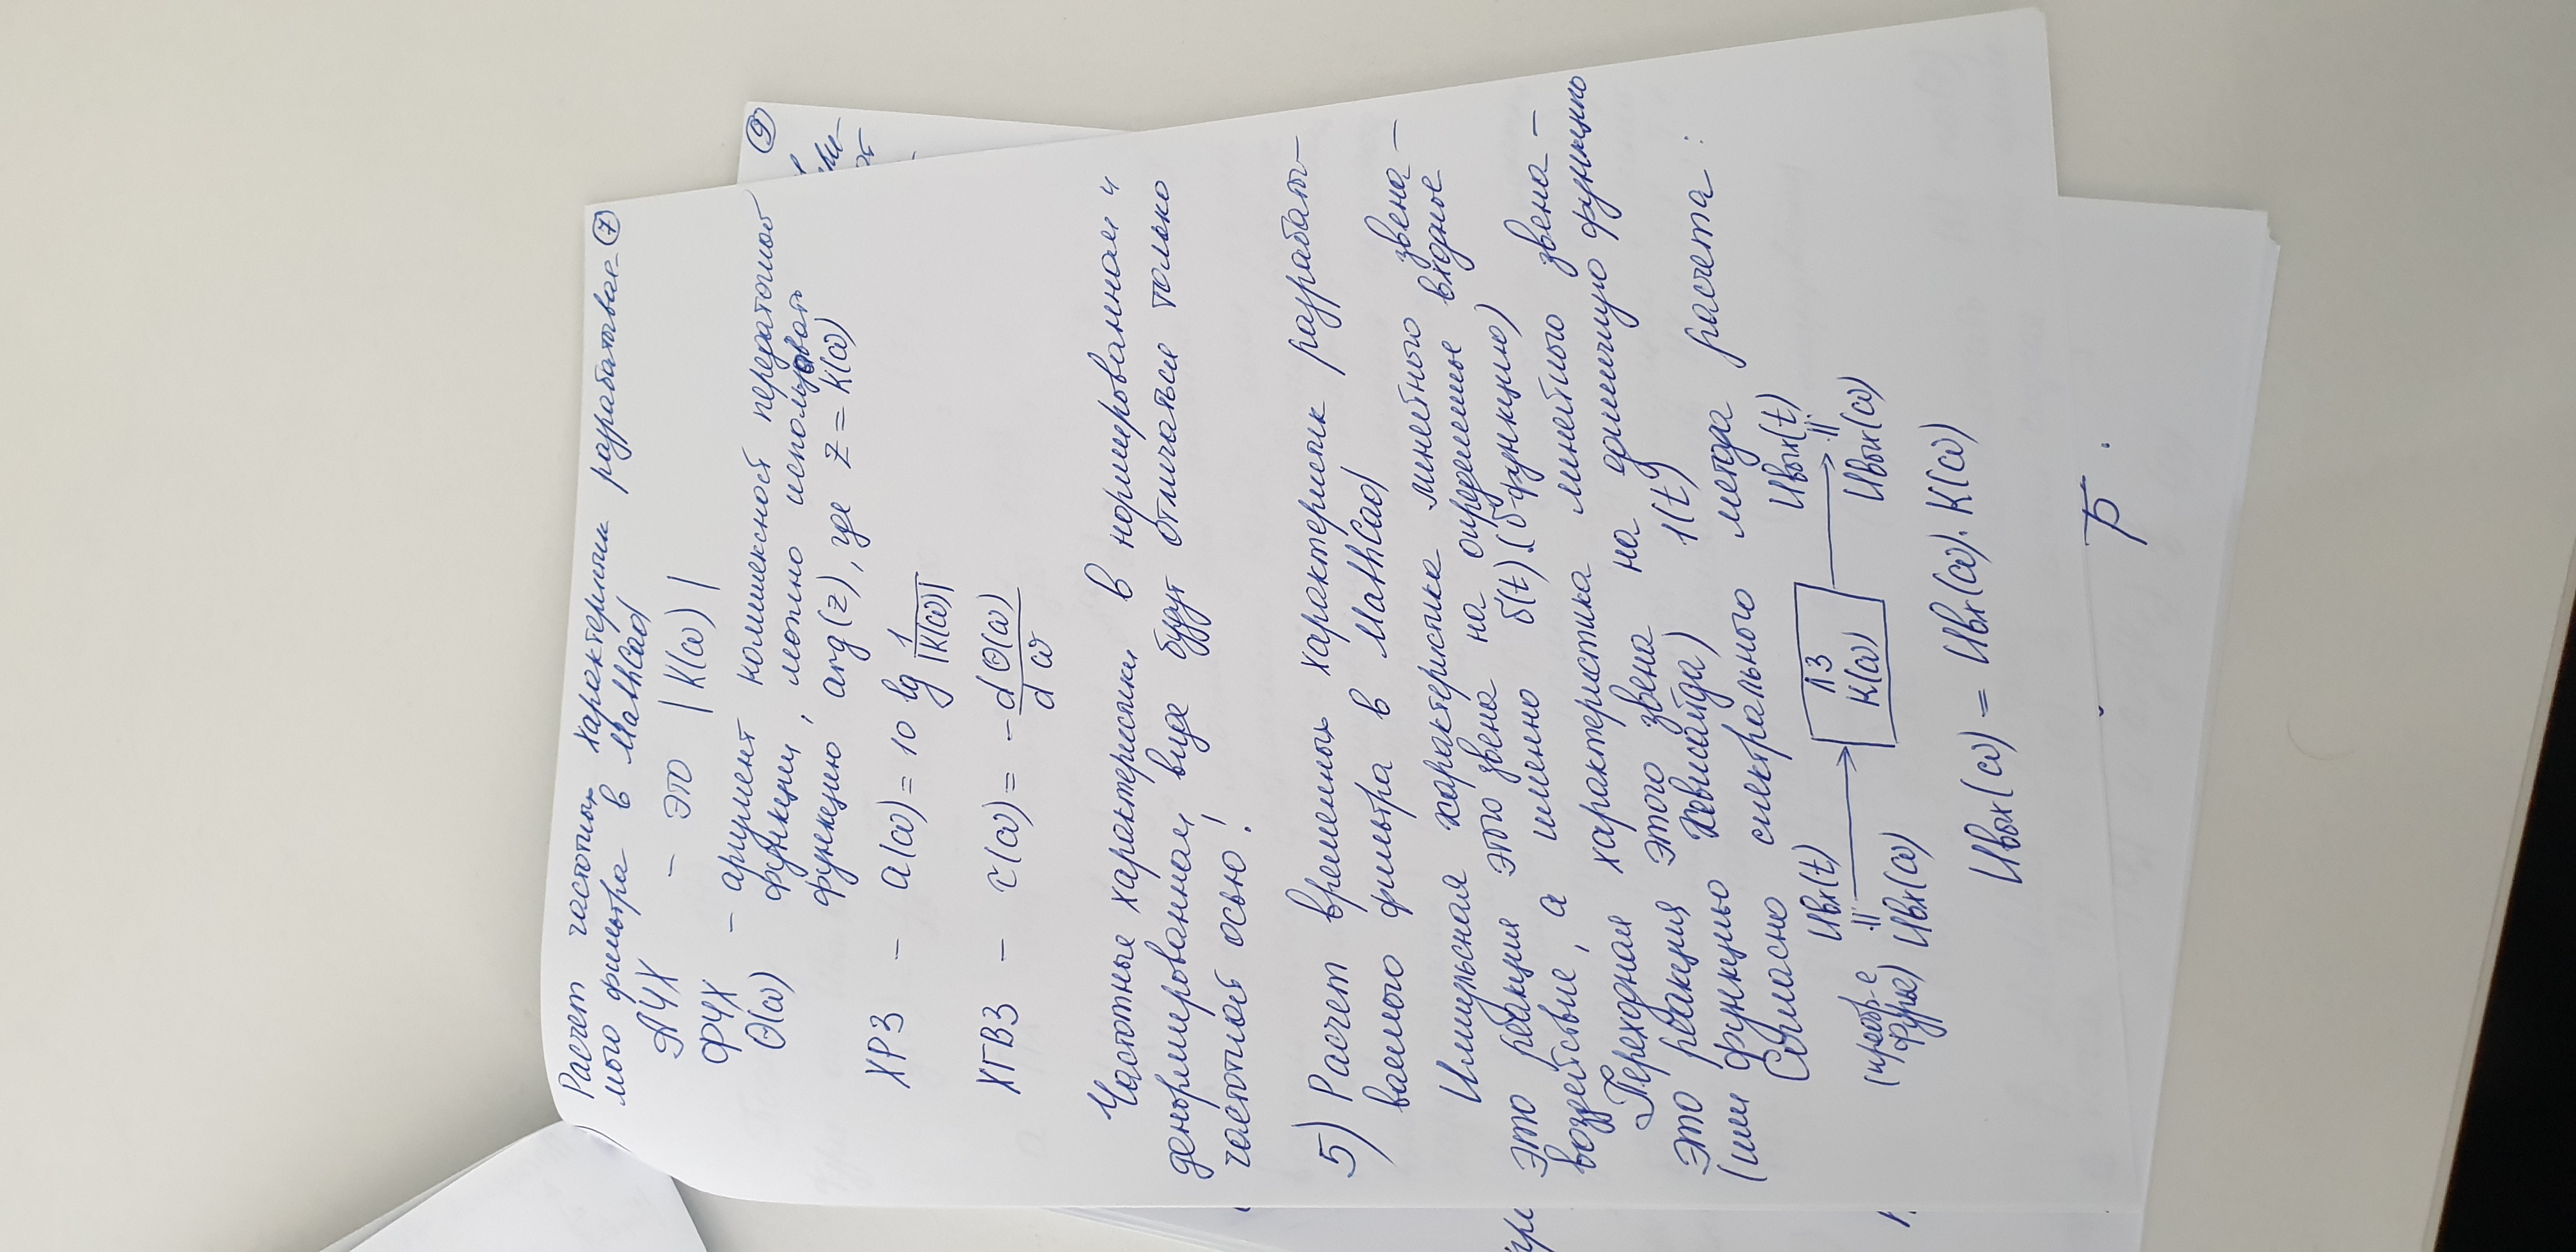 Расчет частотных характеристик разрабатывае- 7
мого фильтра в MathCad
АЧХ – это |K(ω)|
ФЧХ – аргумент комплексной передаточной
Θ(ω) функции, можно использовать
функцию arg(z), где z = K(ω)
ХРЗ – a(ω) = 10 lg 1/|K(ω)|
ХГВЗ – τ(ω) = – dΘ(ω)/dω
Частотные характеристики в нормированном и
денормированном виде будут отличаться только
частотной осью!
5) Расчет временных характеристик разрабаты-
ваемого фильтра в MathCad
Импульсная характеристика линейного звена –
это реакция этого звена на определенное входное
воздействие, а именно δ(t) (δ-функцию)
Переходная характеристика линейного звена –
это реакция этого звена на единичную функцию
(или функцию Хевисайда) 1(t)
Согласно спектрального метода расчета:
Uвх(t) ЛЗ Uвых(t)
(преобр-е Фурье) K(ω)
Uвх(ω) Uвых(ω)
Uвых(ω) = Uвх(ω)·K(ω)
9
p